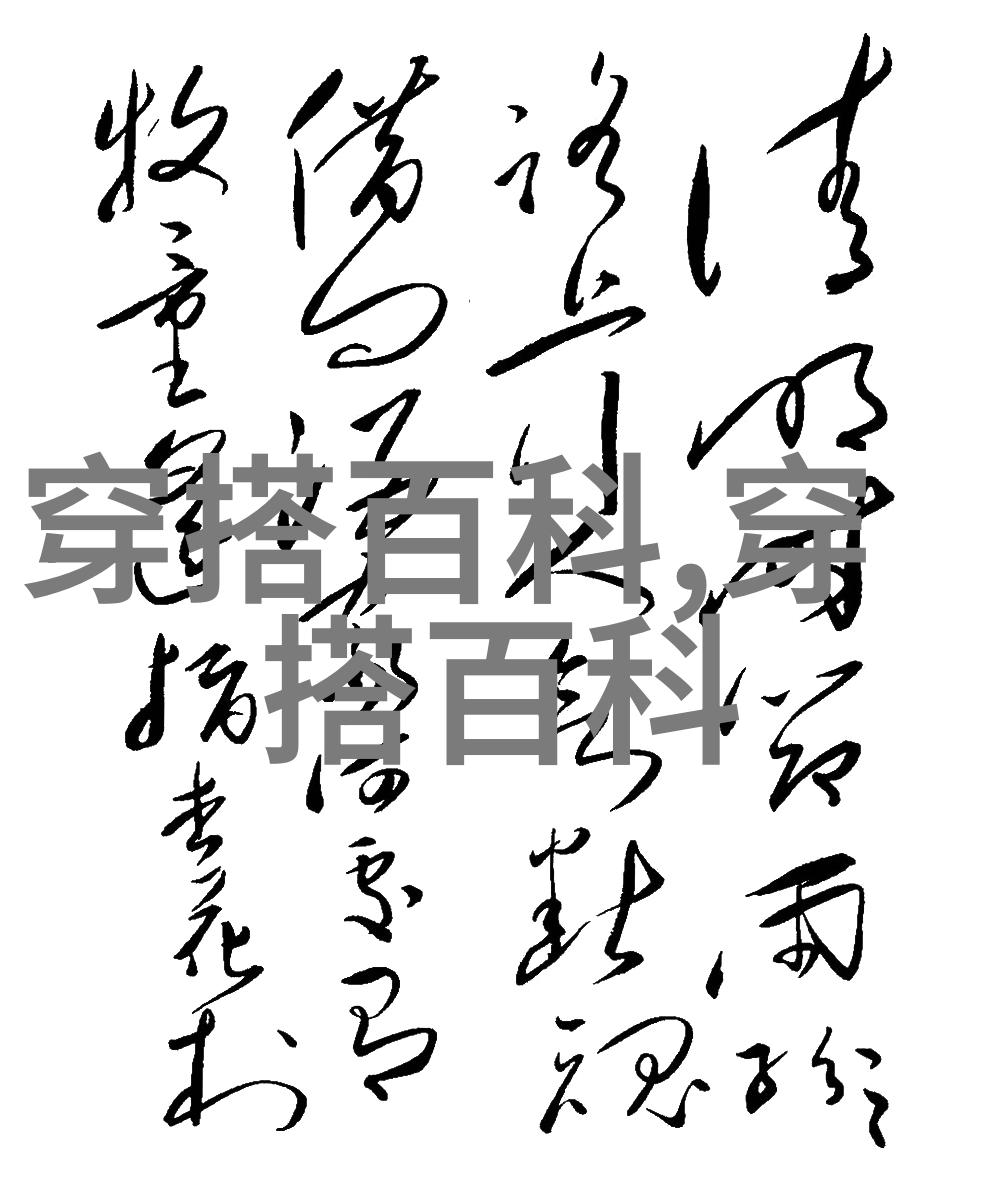 清明时节雨纷纷
路上行人欲断魂
借问酒家何处有
牧童遥指杏花村
穿搭百科,穿
搭百科